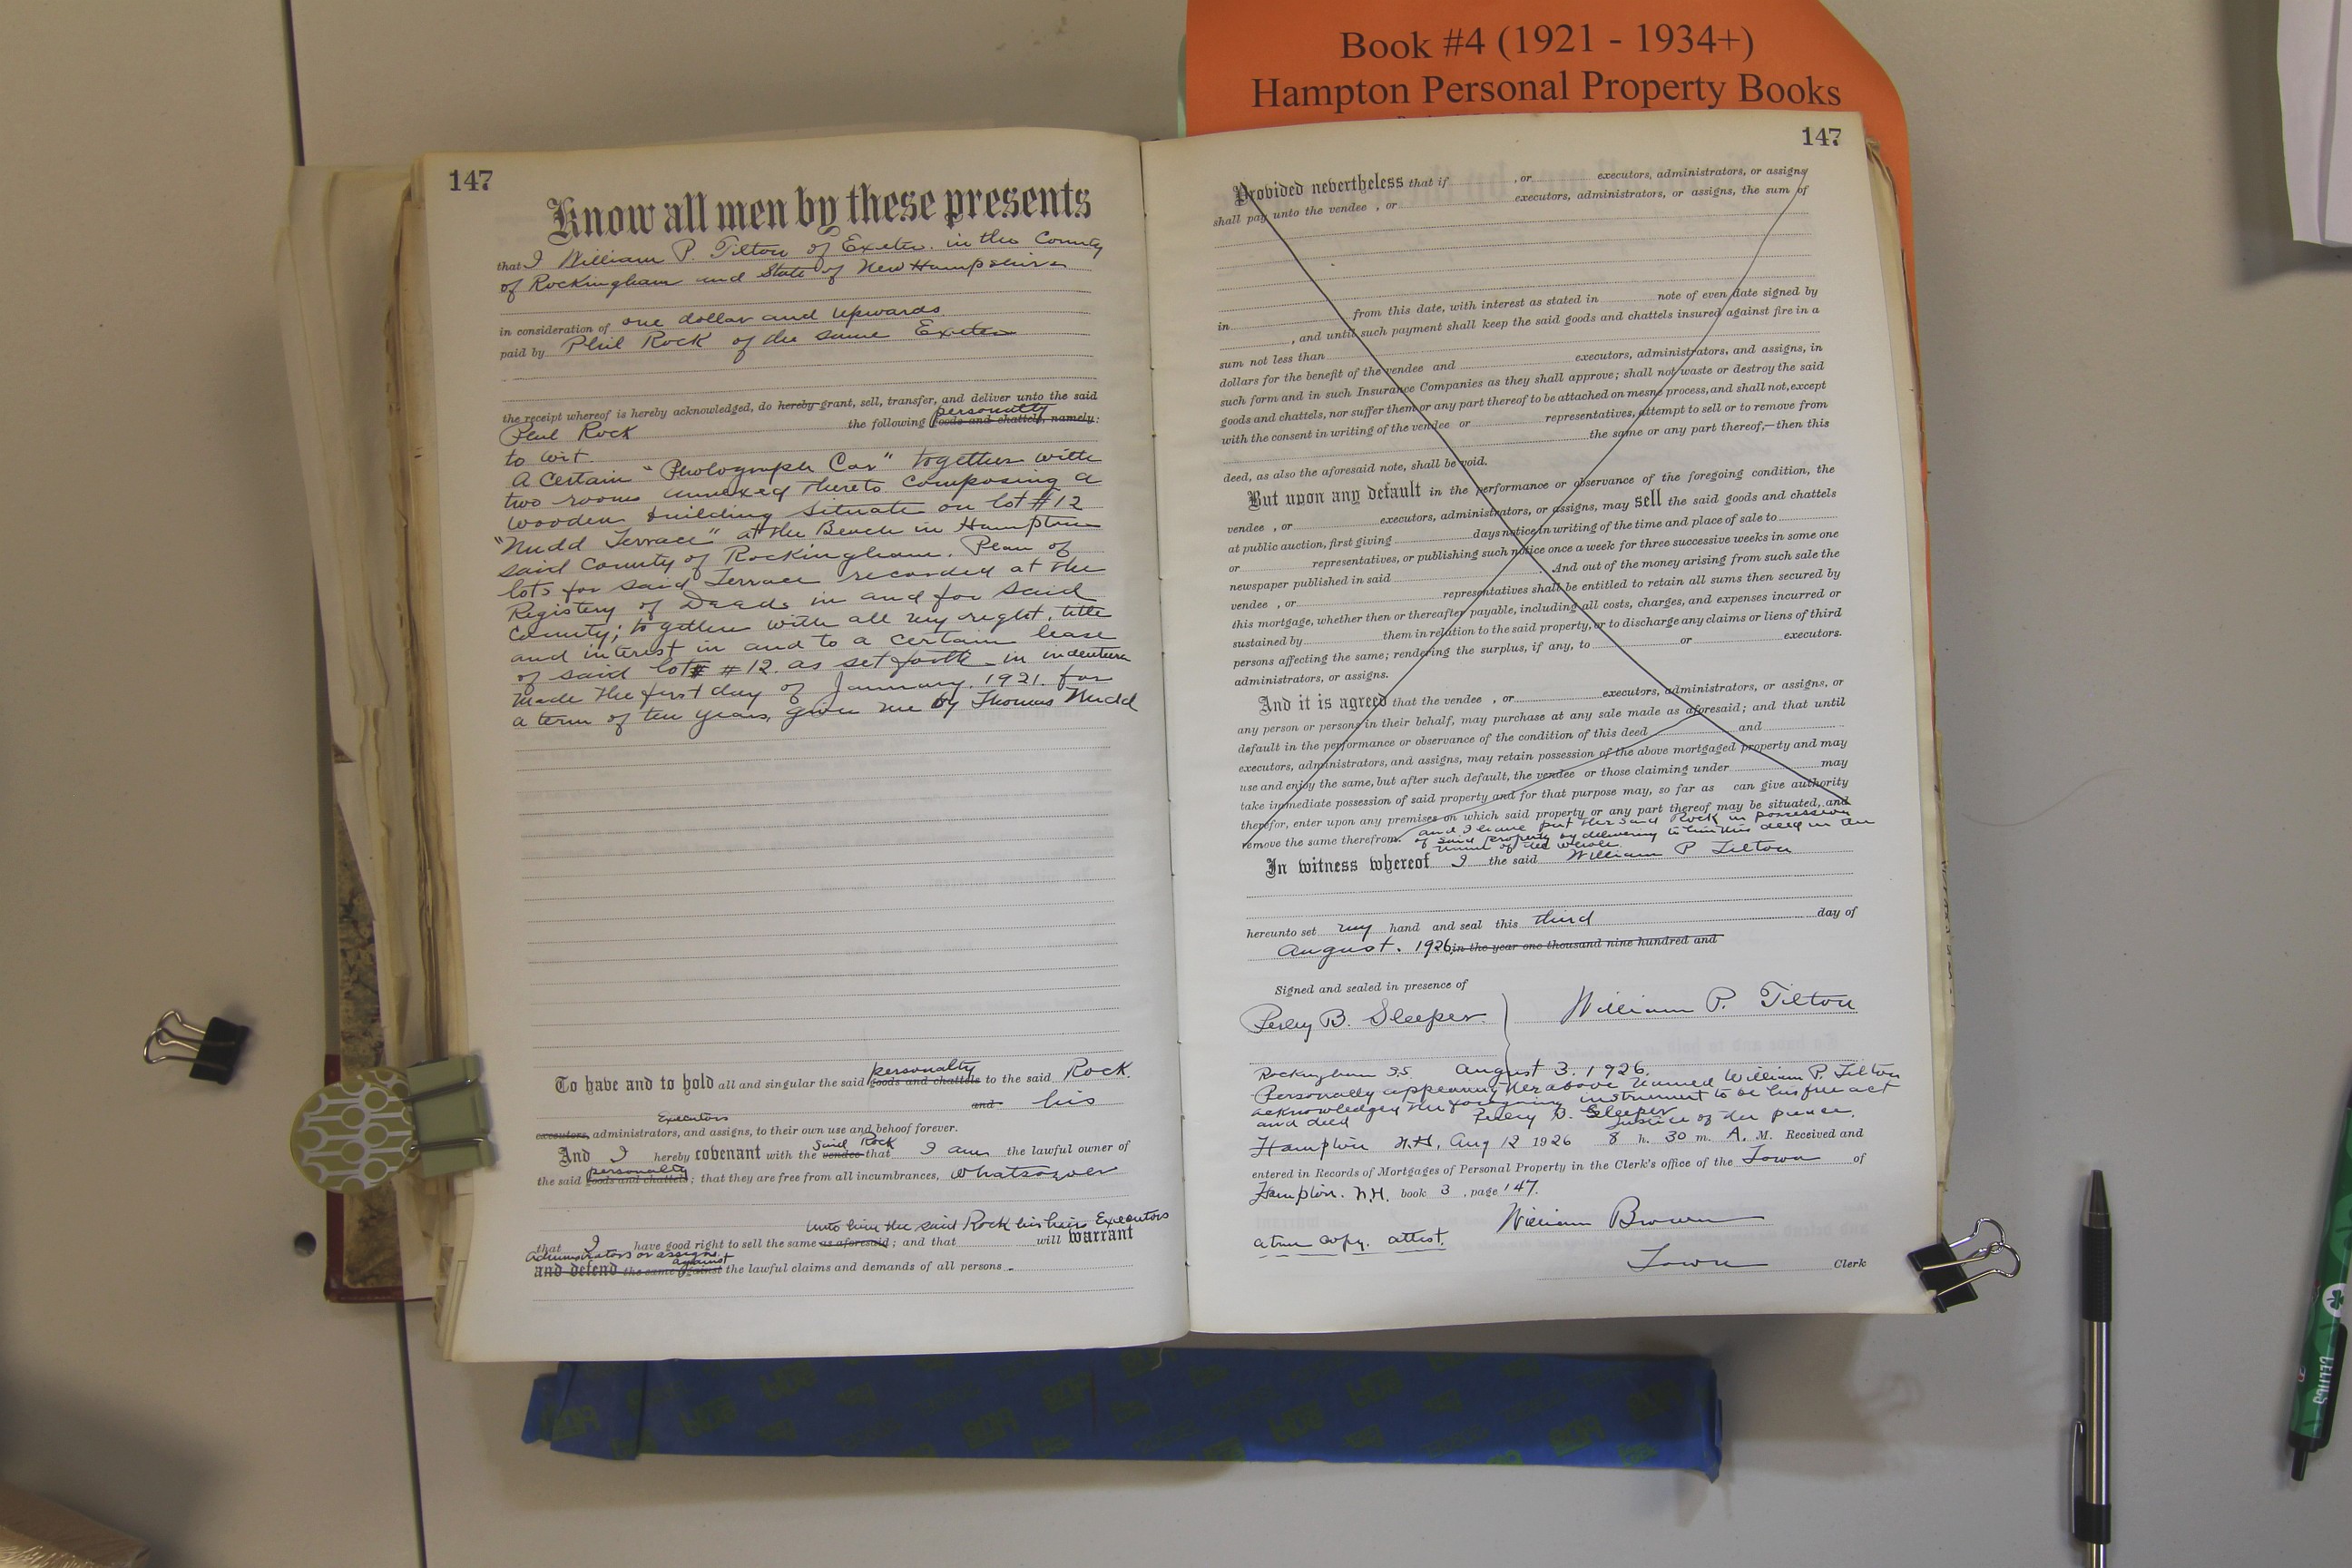 Book #4 (1921 - 1934+)
Hampton Personal Property Books
147
Know all men by these presents
that I William P. Tilton of Exeter in the County
of Rockingham and State of New Hampshire
in consideration of one dollar and upwards
paid by Phil Rock of the same Exeter
the receipt whereof is hereby acknowledged, do hereby grant, sell, transfer, and deliver unto the said
personalty
Phil Rock the following goods and chattels, namely:
to wit
A Certain "Photograph Car" together with
two rooms annexed thereto composing a
wooden building situate on lot #12
"Nudd Terrace" at the Beach in Hampton
said County of Rockingham. Plan of
lots for said Terrace recorded at the
Registery of Deeds in and for said
County; together with all my right, title
and interest in and to a certain lease
of said lot # 12. as set forth in indenture
made the first day of January. 1921. for
a term of ten years, given me by Thomas Nudd
personalty
To have and to hold all and singular the said goods and chattels to the said Rock.
and his
Executors
executors, administrators, and assigns, to their own use and behoof forever.
said Rock
And I hereby covenant with the vendee that I am the lawful owner of
personalty
the said goods and chattels; that they are free from all incumbrances, whatsoever
unto him the said Rock his heirs Executors
that I have good right to sell the same as aforesaid; and that will warrant
administrators or assigns.
against
and defend the same against the lawful claims and demands of all persons
147
Provided nevertheless that if , or executors, administrators, or assigns
shall pay unto the vendee , or executors, administrators, or assigns, the sum of
in from this date, with interest as stated in note of even date signed by
, and until such payment shall keep the said goods and chattels insured against fire in a
sum not less than
dollars for the benefit of the vendee and executors, administrators, and assigns, in
such form and in such Insurance Companies as they shall approve; shall not waste or destroy the said
goods and chattels, nor suffer them or any part thereof to be attached on mesne process, and shall not, except
with the consent in writing of the vendee or representatives, attempt to sell or to remove from
the same or any part thereof,—then this
deed, as also the aforesaid note, shall be void.
But upon any default in the performance or observance of the foregoing condition, the
vendee , or executors, administrators, or assigns, may sell the said goods and chattels
at public auction, first giving days notice in writing of the time and place of sale to
or representatives, or publishing such notice once a week for three successive weeks in some one
newspaper published in said . And out of the money arising from such sale the
vendee , or representatives shall be entitled to retain all sums then secured by
this mortgage, whether then or thereafter payable, including all costs, charges, and expenses incurred or
sustained by them in relation to the said property, or to discharge any claims or liens of third
persons affecting the same; rendering the surplus, if any, to or executors.
administrators, or assigns.
And it is agreed that the vendee , or executors, administrators, or assigns, or
any person or persons in their behalf, may purchase at any sale made as aforesaid; and that until
default in the performance or observance of the condition of this deed and
executors, administrators, and assigns, may retain possession of the above mortgaged property and may
use and enjoy the same, but after such default, the vendee or those claiming under may
take immediate possession of said property and for that purpose may, so far as can give authority
therefor, enter upon any premises on which said property or any part thereof may be situated, and
remove the same therefrom. and I have put the said Rock in possession
of said property by delivering to him this deed in the
name of the whole.
In witness whereof I the said William P Tilton
hereunto set my hand and seal this third day of
August. 1926. in the year one thousand nine hundred and
Signed and sealed in presence of
Perley B. Sleeper. William P. Tilton
Rockingham SS August 3. 1926.
Personally appearing the above named William P. Tilton
acknowledged the foregoing instrument to be his free act
and deed Perley B. Sleeper
Justice of the peace.
Hampton N.H. Aug 12 1926 8 h. 30 m. A. M. Received and
entered in Records of Mortgages of Personal Property in the Clerk's office of the Town of
Hampton. N.H. book 3 , page 147.
William Brown
a true copy. attest.
Town Clerk
CELTICS